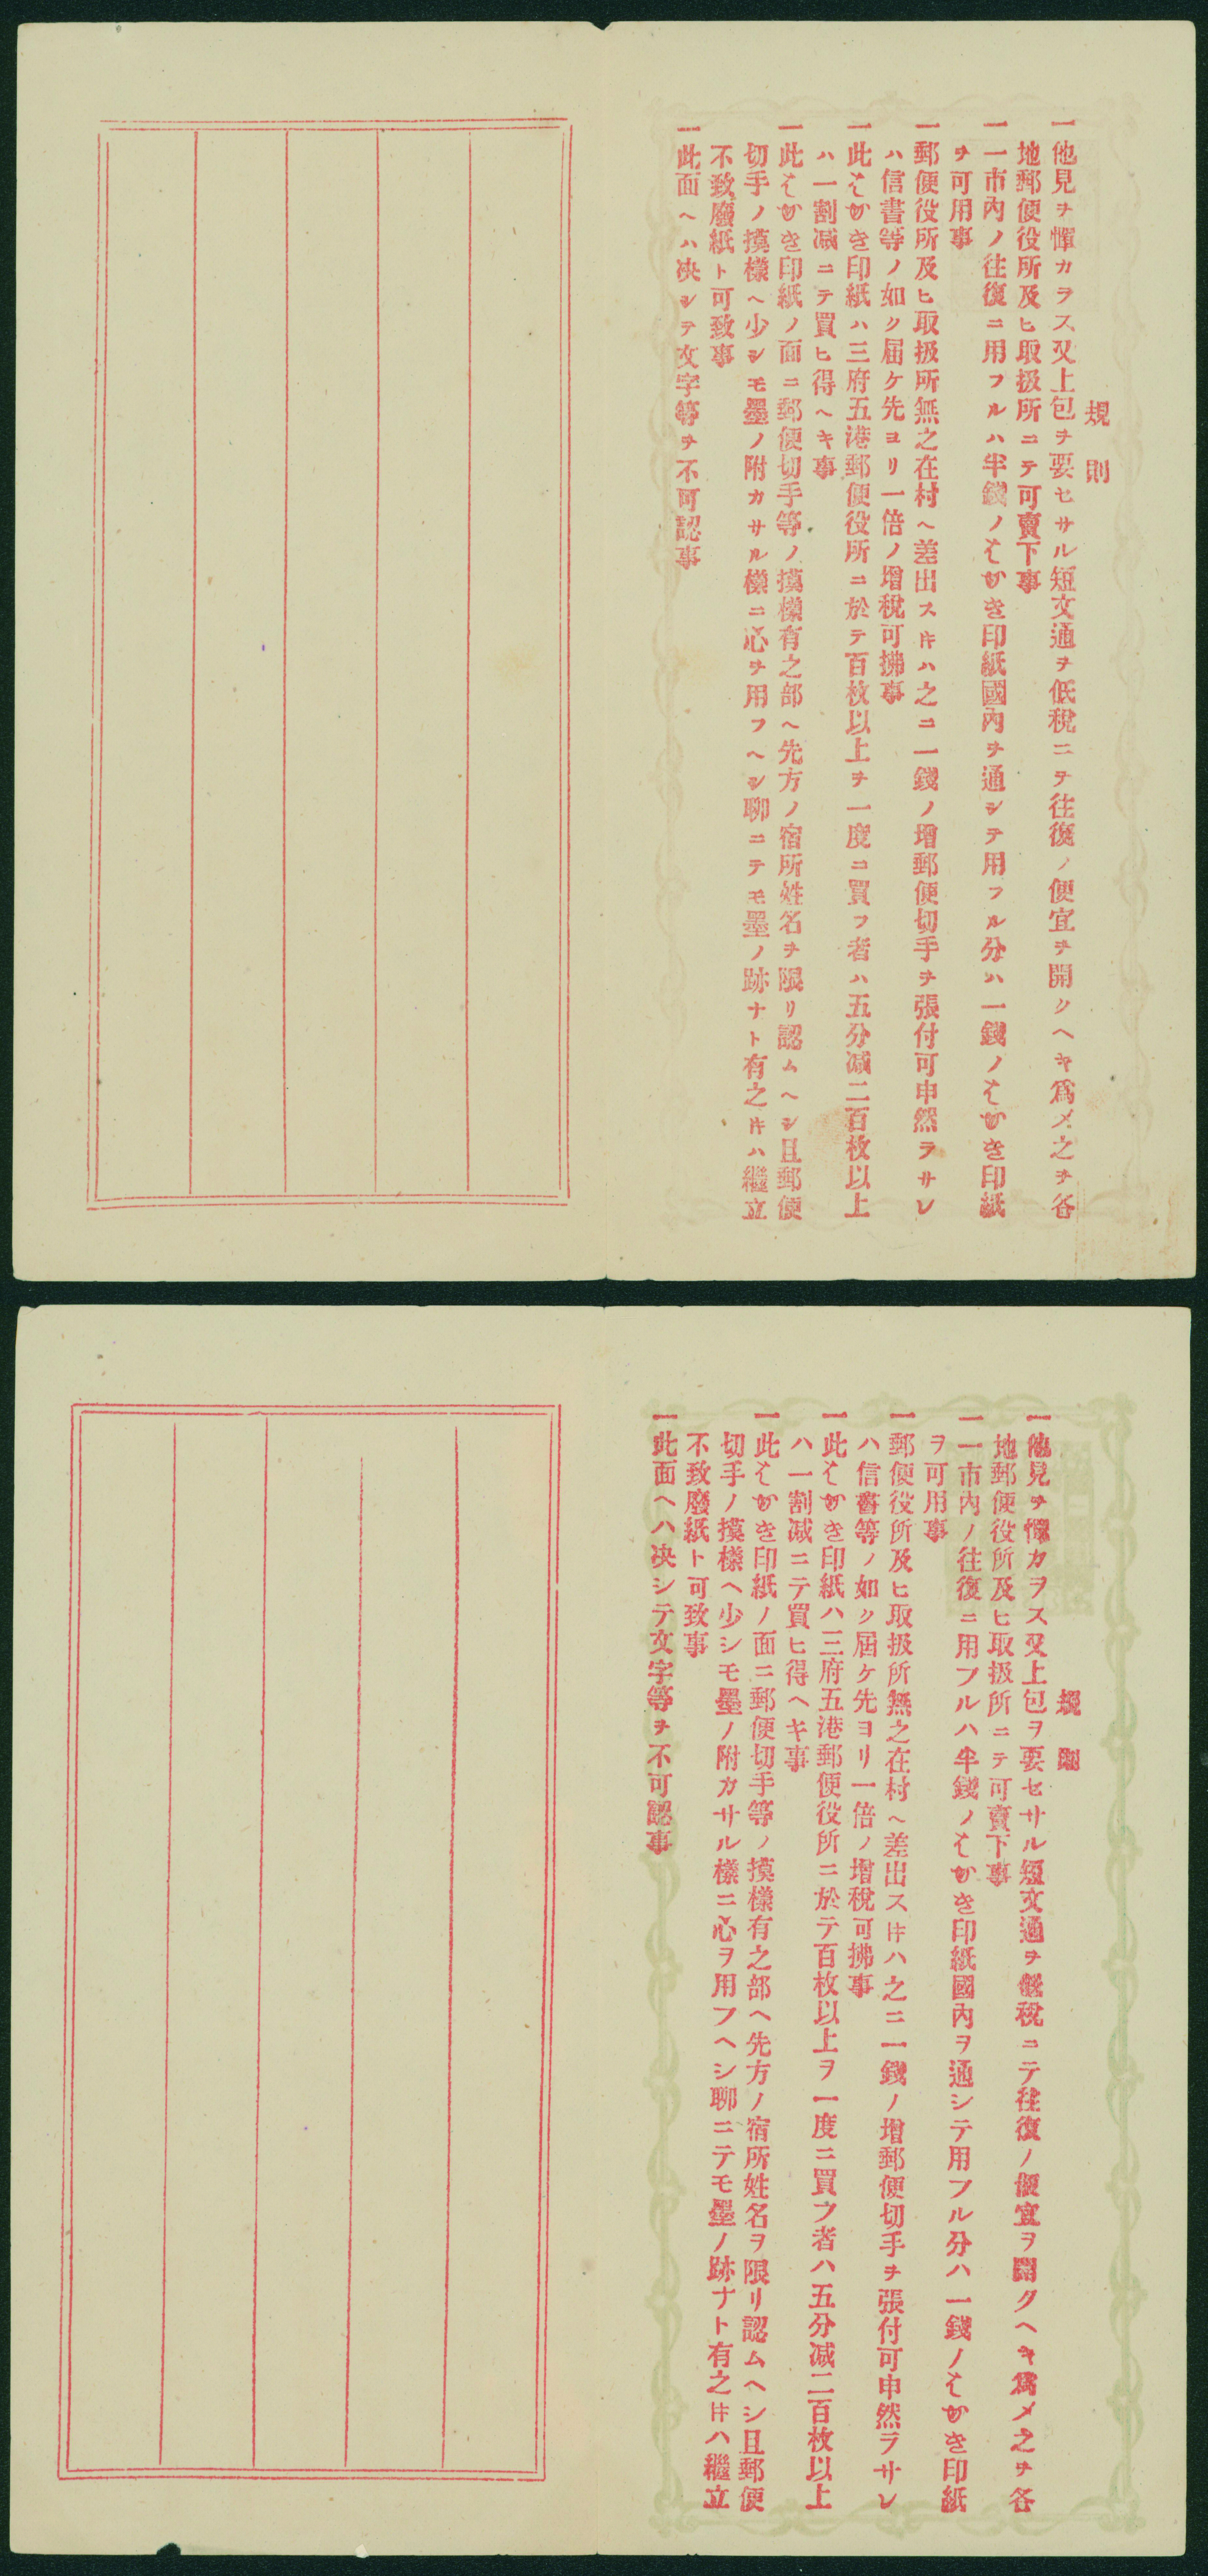 規則
一他見ヲ憚カラス又上包ヲ要セサル短文通ヲ低税ニテ往復ノ便宜ヲ開クヘキ為メ之ヲ各
地郵便役所及ヒ取扱所ニテ可賣下事
一一市內ノ往復ニ用フルハ半錢ノはがき印紙國內ヲ通シテ用フル分ハ一錢ノはがき印紙
ヲ可用事
一郵便役所及ヒ取扱所無之在村ヘ差出ス𪜈ハ之ニ一錢ノ增郵便切手ヲ張付可申然ラサレ
ハ信書等ノ如ク屆ケ先ヨリ一倍ノ增稅可拂事
一此はがき印紙ハ三府五港郵便役所ニ於テ百枚以上ヲ一度ニ買フ者ハ五分减二百枚以上
ハ一割减ニテ買ヒ得ヘキ事
一此はがき印紙ノ面ニ郵便切手等ノ摸樣有之部ヘ先方ノ宿所姓名ヲ限リ認ムヘシ且郵便
切手ノ摸樣ヘ少シモ墨ノ附カサル樣ニ心ヲ用フヘシ聊ニテモ墨ノ跡ナト有之𪜈ハ繼立
不致廢紙ト可致事
一此面ヘハ决シテ文字等ヲ不可認事
規則
一他見ヲ憚カラス又上包ヲ要セサル短文通ヲ低税ニテ往復ノ便宜ヲ開クヘキ為メ之ヲ各
地郵便役所及ヒ取扱所ニテ可賣下事
一一市內ノ往復ニ用フルハ半錢ノはがき印紙國內ヲ通シテ用フル分ハ一錢ノはがき印紙
ヲ可用事
一郵便役所及ヒ取扱所無之在村ヘ差出ス𪜈ハ之ニ一錢ノ增郵便切手ヲ張付可申然ラサレ
ハ信書等ノ如ク屆ケ先ヨリ一倍ノ增稅可拂事
一此はがき印紙ハ三府五港郵便役所ニ於テ百枚以上ヲ一度ニ買フ者ハ五分减二百枚以上
ハ一割减ニテ買ヒ得ヘキ事
一此はがき印紙ノ面ニ郵便切手等ノ摸樣有之部ヘ先方ノ宿所姓名ヲ限リ認ムヘシ且郵便
切手ノ摸樣ヘ少シモ墨ノ附カサル樣ニ心ヲ用フヘシ聊ニテモ墨ノ跡ナト有之𪜈ハ繼立
不致廢紙ト可致事
一此面ヘハ决シテ文字等ヲ不可認事